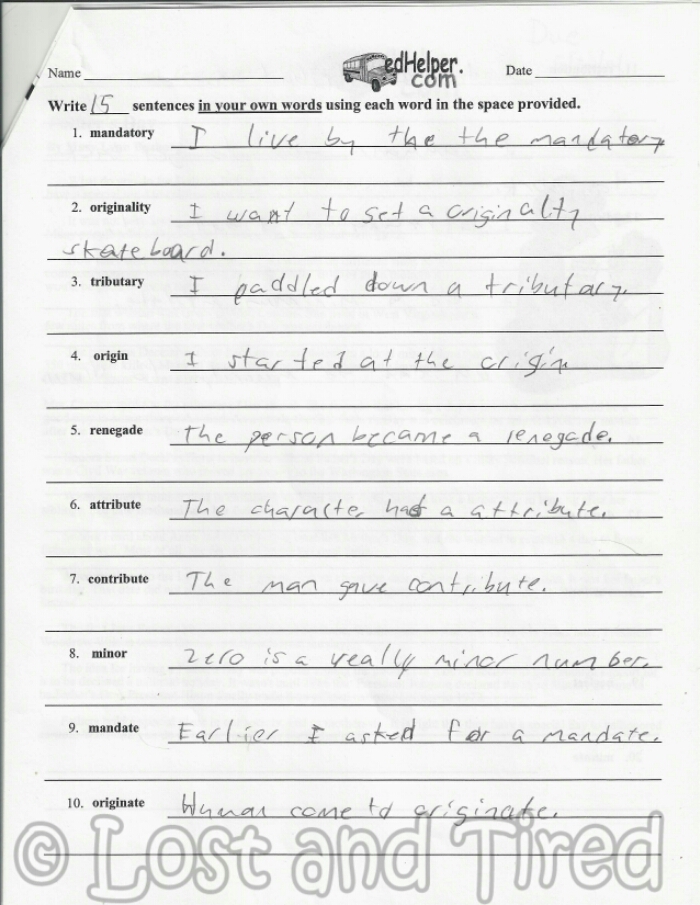 Name
edHelper.
com
Date
Write 15 sentences in your own words using each word in the space provided.
1. mandatory I live by the the mandatory
2. originality I want to set a originality
skateboard.
3. tributary I paddled down a tributary.
4. origin I started at the origin
5. renegade the person became a renegade.
6. attribute The character had a attribute.
7. contribute The man gave contribute.
8. minor Zero is a really minor number.
9. mandate Earlier I asked for a mandate.
10. originate Human come to originate.
© Lost and Tired